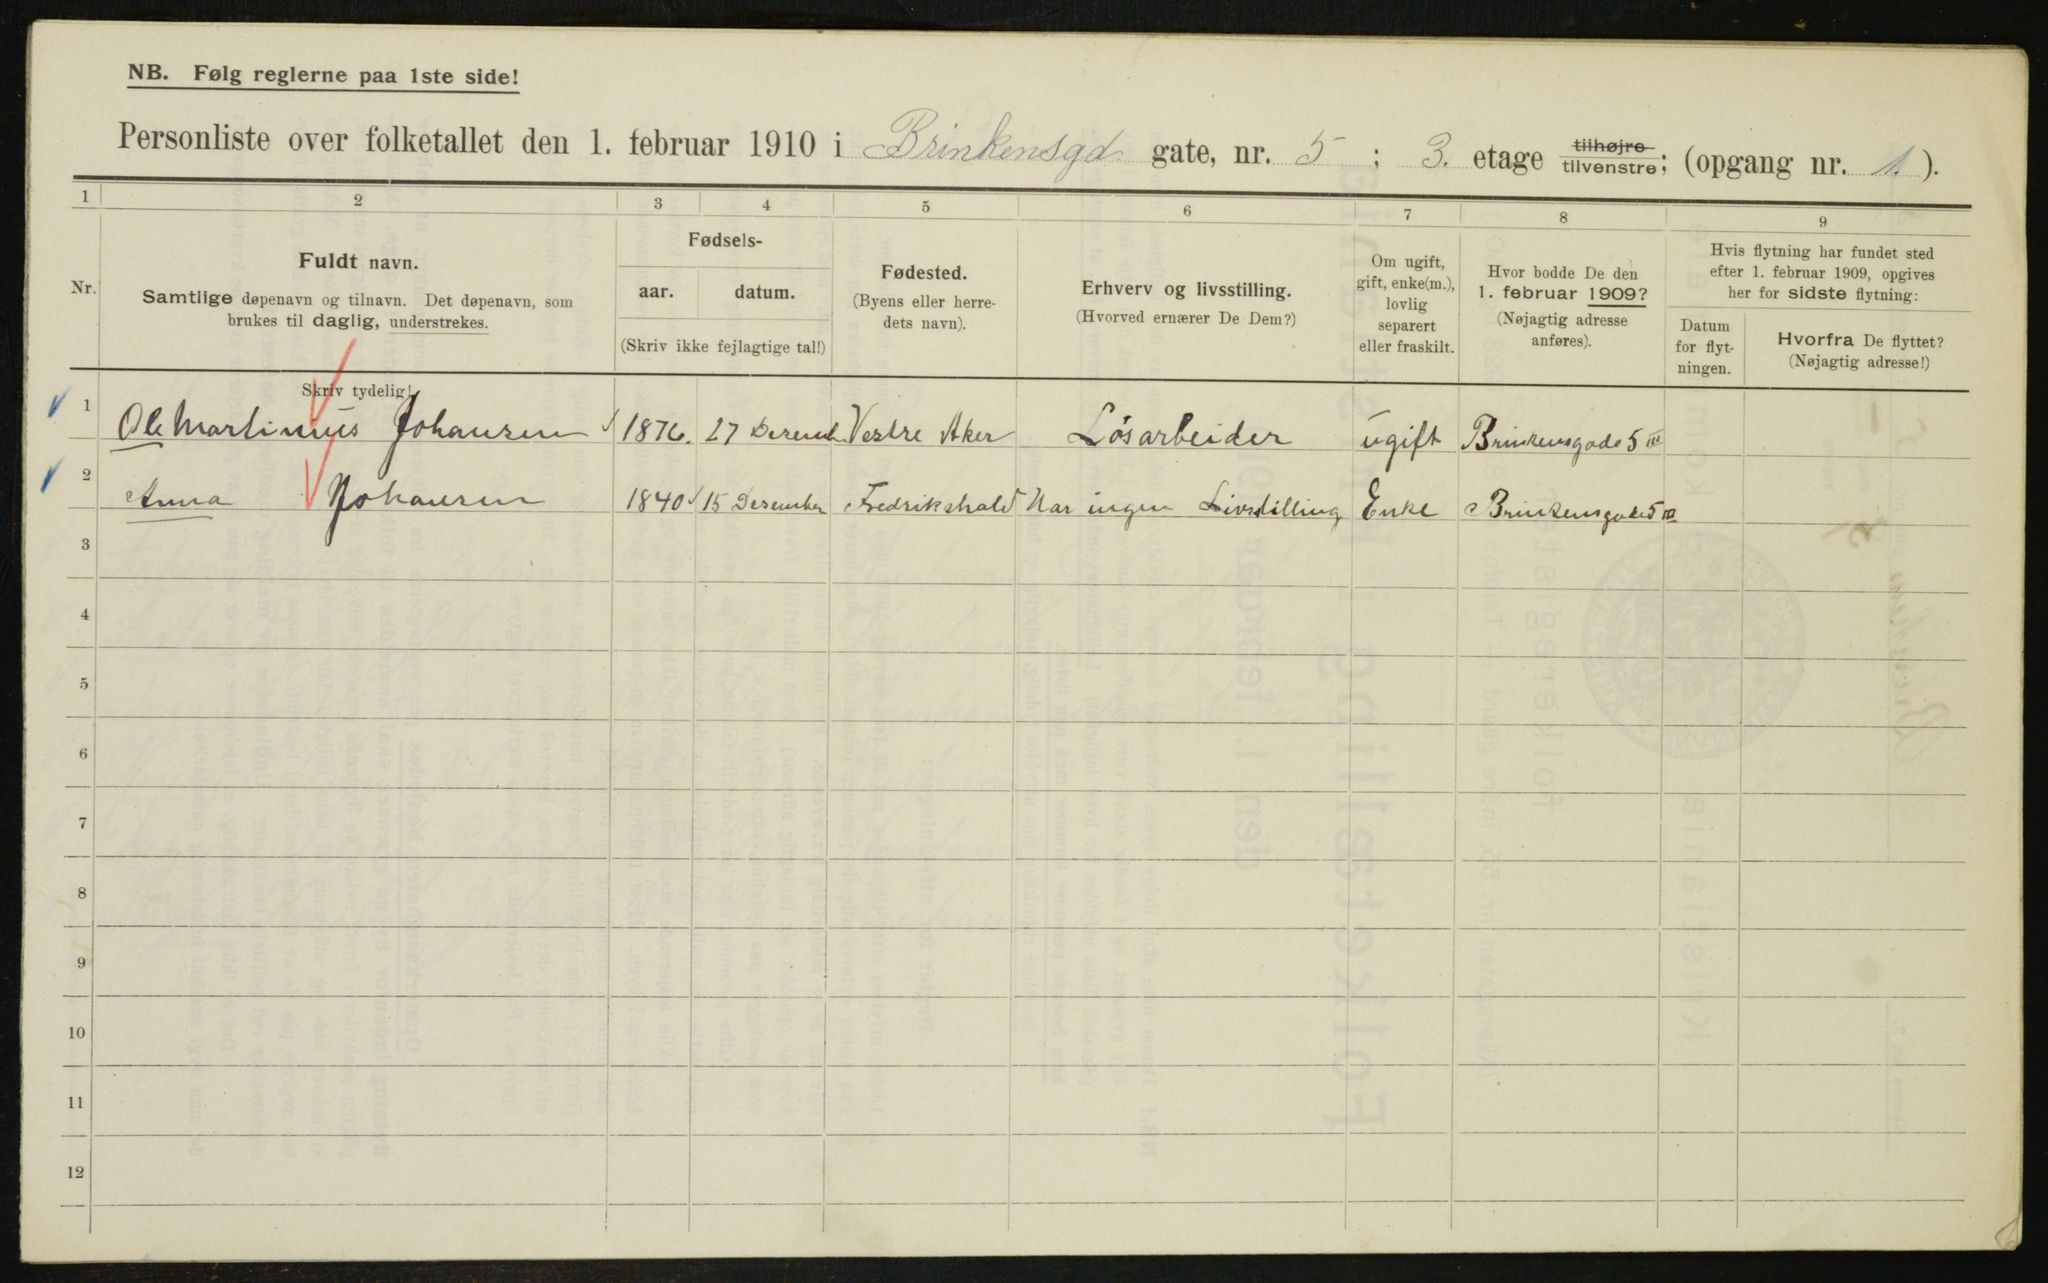 NB. Følg reglerne paa 1ste side!
Personliste over folketallet den 1. februar 1910 i Brinkensgd gate, nr. 5 ; 3. etage tilhøjre tilvenstre; (opgang nr. 1. ).
1 2 3 4 5 6 7 8 9
Nr.
Fuldt navn.
Samtlige døpenavn og tilnavn. Det døpenavn, som
brukes til daglig, understrekes.
Skriv tydelig!
Fødsels-
aar. datum.
(Skriv ikke fejlagtige tal!)
Fødested.
(Byens eller herre-
dets navn).
Erhverv og livsstilling.
(Hvorved ernærer De Dem?)
Om ugift,
gift, enke(m.),
lovlig
separert
eller fraskilt.
Hvor bodde De den
1. februar 1909?
(Nøjagtig adresse
anføres).
Hvis flytning har fundet sted
efter 1. februar 1909, opgives
her for sidste flytning:
Datum
for flyt-
ningen.
Hvorfra De flyttet?
(Nøjagtig adresse!)
1 Ole Martinius Johansen 1876. 27 Decemb Vestre Aker Løsarbeider ugift Brinkensgade 5 III
2 Anna Johansen 1840 15 December Fredrikshald Har ingen Livstilling Enke Brinkensgade 5 III
3
4
5
6
7
8
9
10
11
12